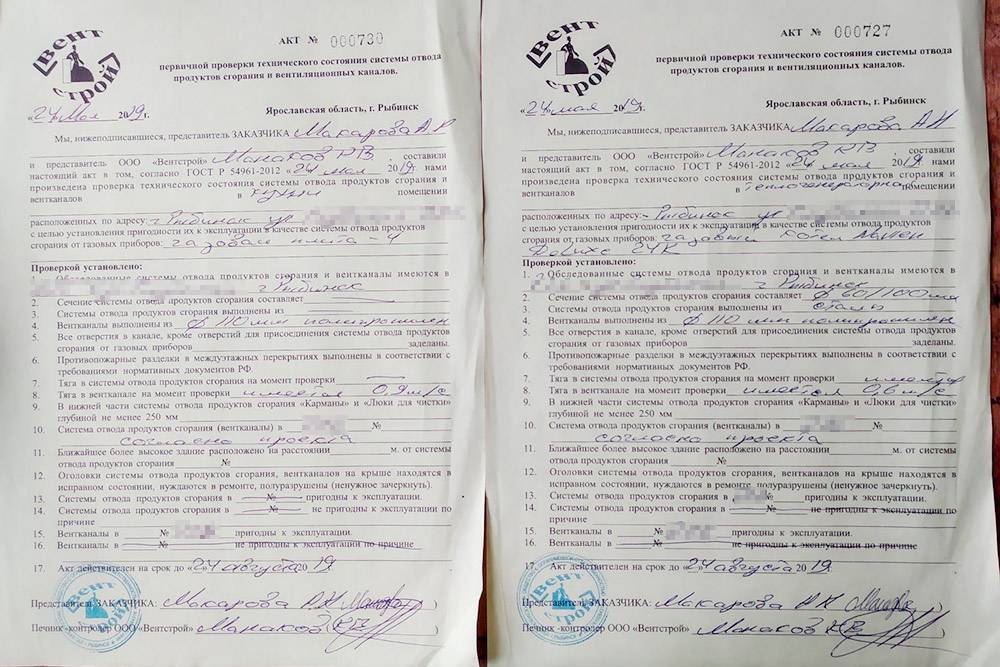 ВЕНТ СТРОЙ
АКТ № 000730
первичной проверки технического состояния системы отвода
продуктов сгорания и вентиляционных каналов.
«24» Мая 2019г. Ярославская область, г. Рыбинск
Мы, нижеподписавшиеся, представитель ЗАКАЗЧИКА Макарова А.Н
и представитель ООО «Вентстрой» Манаков РВ, составили
настоящий акт в том, согласно ГОСТ Р 54961-2012 «24» мая 2019г. нами
произведена проверка технического состояния системы отвода продуктов сгорания и
вентканалов в кухни помещении
расположенных по адресу: г Рыбинск ул
с целью установления пригодности их к эксплуатации в качестве системы отвода продуктов
сгорания от газовых приборов: газовая плита-4
Проверкой установлено:
1. Обследованные системы отвода продуктов сгорания и вентканалы имеются в
г Рыбинск
2. Сечение системы отвода продуктов сгорания составляет
3. Системы отвода продуктов сгорания выполнены из
4. Вентканалы выполнены из ф 110 мм полипропилен
5. Все отверстия в канале, кроме отверстий для присоединения системы отвода продуктов
сгорания от газовых приборов заделаны.
6. Противопожарные разделки в междуэтажных перекрытиях выполнены в соответствии с
требованиями нормативных документов РФ.
7. Тяга в системы отвода продуктов сгорания на момент проверки
8. Тяга в вентканале на момент проверки имеется 0,9 м/с
9. В нижней части системы отвода продуктов сгорания «Карманы» и «Люки для чистки»
глубиной не менее 250 мм
10. Система отвода продуктов сгорания (вентканалы) в №
согласно проекта
11. Ближайшее более высокое здание расположено на расстоянии м. от системы
отвода продуктов сгорания №
12. Оголовки системы отвода продуктов сгорания, вентканалов на крыше находятся в
исправном состоянии, нуждаются в ремонте, полуразрушены (ненужное зачеркнуть).
13. Системы отвода продуктов сгорания в № пригодны к эксплуатации.
14. Системы отвода продуктов сгорания в № не пригодны к эксплуатации по
причине
15. Вентканалы в № пригодны к эксплуатации.
16. Вентканалы в № не пригодны к эксплуатации по причине
17. Акт действителен на срок до «24» августа 2019.
Представитель ЗАКАЗЧИКА: Макарова А Н
Печник-контролер ООО «Вентстрой» Манаков РВ )
ВЕНТ СТРОЙ
АКТ № 000727
первичной проверки технического состояния системы отвода
продуктов сгорания и вентиляционных каналов.
«24» мая 2019г. Ярославская область, г. Рыбинск
Мы, нижеподписавшиеся, представитель ЗАКАЗЧИКА Макарова А Н
и представитель ООО «Вентстрой» Манаков РВ, составили
настоящий акт в том, согласно ГОСТ Р 54961-2012 «24» мая 2019г. нами
произведена проверка технического состояния системы отвода продуктов сгорания и
вентканалов в теплогенераторной помещении
расположенных по адресу: г Рыбинск ул
с целью установления пригодности их к эксплуатации в качестве системы отвода продуктов
сгорания от газовых приборов: газовый котел
Deluxe 24К
Проверкой установлено:
1. Обследованные системы отвода продуктов сгорания и вентканалы имеются в
г Рыбинск
2. Сечение системы отвода продуктов сгорания составляет ф 60/100 мм
3. Системы отвода продуктов сгорания выполнены из сталь
4. Вентканалы выполнены из ф 110 мм полипропилен
5. Все отверстия в канале, кроме отверстий для присоединения системы отвода продуктов
сгорания от газовых приборов заделаны.
6. Противопожарные разделки в междуэтажных перекрытиях выполнены в соответствии с
требованиями нормативных документов РФ.
7. Тяга в системы отвода продуктов сгорания на момент проверки имеется
8. Тяга в вентканале на момент проверки имеется 0,6 м/с
9. В нижней части системы отвода продуктов сгорания «Карманы» и «Люки для чистки»
глубиной не менее 250 мм
10. Система отвода продуктов сгорания (вентканалы) в №
согласно проекта
11. Ближайшее более высокое здание расположено на расстоянии м. от системы
отвода продуктов сгорания №
12. Оголовки системы отвода продуктов сгорания, вентканалов на крыше находятся в
исправном состоянии, нуждаются в ремонте, полуразрушены (ненужное зачеркнуть).
13. Системы отвода продуктов сгорания в № пригодны к эксплуатации.
14. Системы отвода продуктов сгорания в № не пригодны к эксплуатации по
причине
15. Вентканалы в № пригодны к эксплуатации.
16. Вентканалы в № не пригодны к эксплуатации по причине
17. Акт действителен на срок до «24» августа 2019.
Представитель ЗАКАЗЧИКА: Макарова А Н
Печник-контролер ООО «Вентстрой» Манаков РВ )